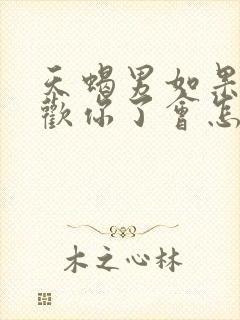 天蝎男如果
歡你了會怎
木之心林